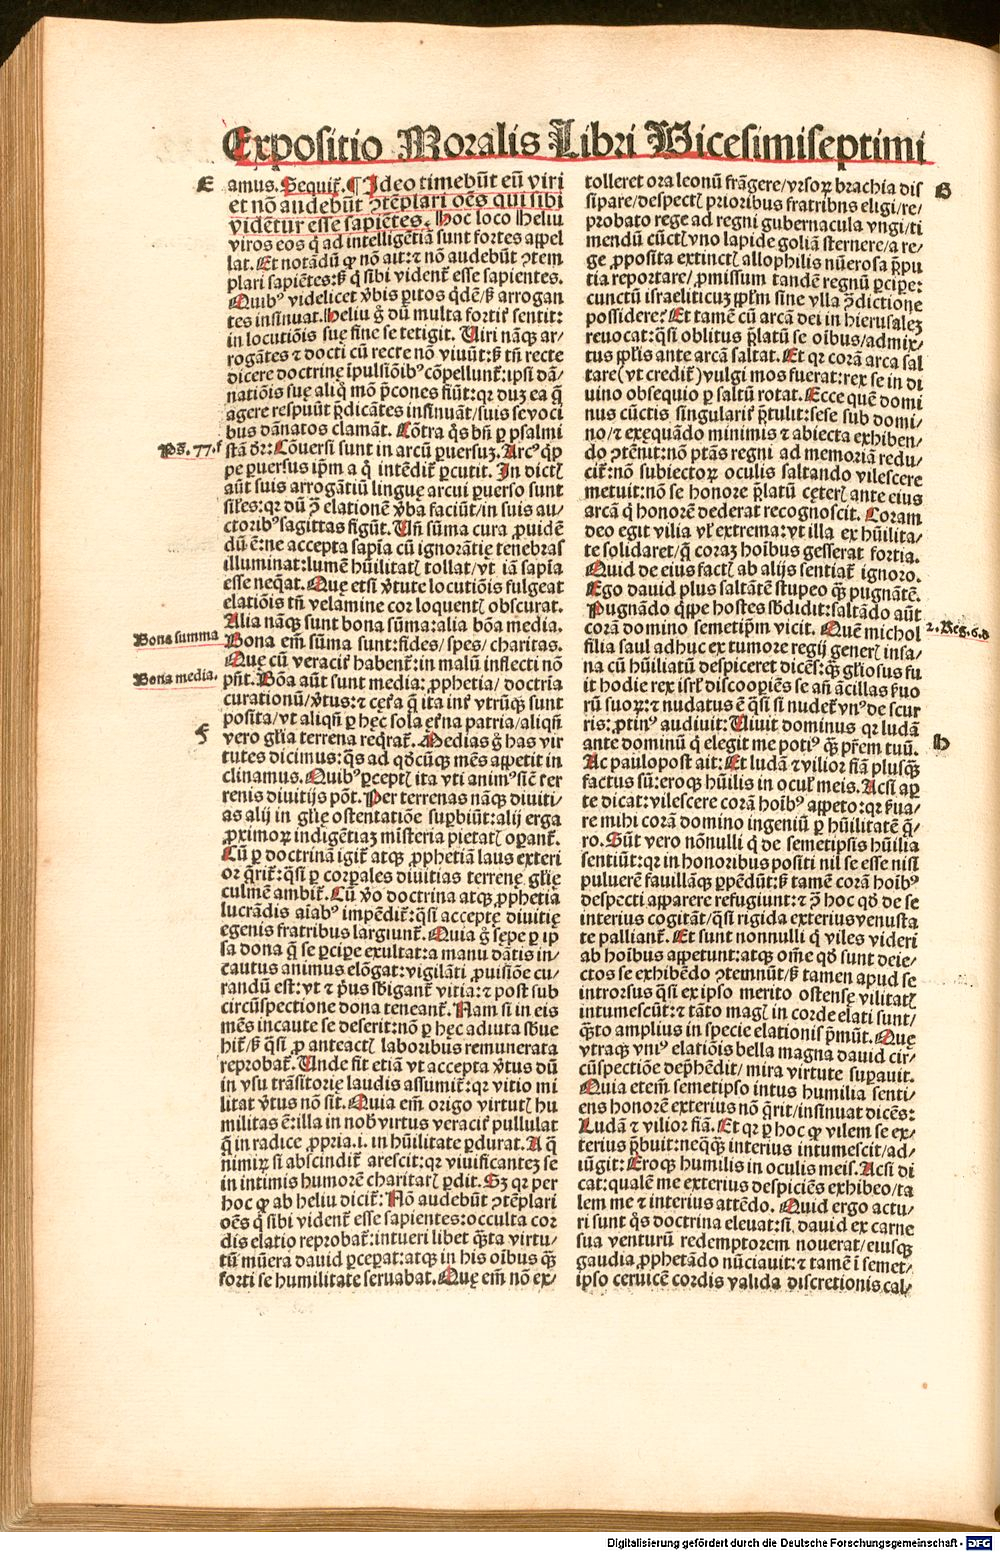 Expositio Moralis Libri Vicesimiseptimi
E
amus. Sequit᷑. ¶ Ideo timebūt eū viri
et nō audebūt ꝯtēplari oēs qui sibi
vidētur esse sapiētes. Hoc loco Heliu
viros eos q̇ ad intelligētiā sunt fortes appel
lat. Et notādū ꝙ nō ait: ⁊ nō audebūt ꝯtem
plari sapiētes: s̄ q̇ sibi vident᷑ esse sapientes.
Quibꝰ videlicet v̄bis p̄itos q̇dē/s̄ arrogan
tes insinuat. Heliu g̊ dū multa fortit᷑ sentit:
in locutiōis sue fine se tetigit. Viri nāqꝫ ar⸗
rogātes ⁊ docti cū recte nō viuūt: s̄ tn̄ recte
dicere doctrine īpulsiōibꝰ cōpellunt᷑: ipsi dā⸗
natiōis sue aliq̊ mō p̄cones fiūt: qꝛ duꝫ ea q̄
agere respuūt p̄dicātes insinuāt/suis se voci
bus dānatos clamāt. Cōtra q̊s bn̄ ꝑ psalmi
Ps. 77. f
stā d̄r: Cōuersi sunt in arcū ꝑuersuꝫ. Arcꝰ q̇p
pe ꝑuersus ip̄m a q̊ intēdit᷑ ꝑcutit. In dictꝭ
aūt suis arrogātiū lingue arcui ꝑuerso sunt
sil̄es: qꝛ dū ꝓ elatione v̄ba faciūt/in suis au⸗
ctoribꝰ sagittas figūt. Vn̄ sūma cura ꝓuidē
dū ē: ne accepta sapīa cū ignorātie tenebras
illuminat: lumē hūilitatꝭ tollat/vt iā sapīa
esse neq̇at. Que etsi v̄tute locutiōis fulgeat
elatiōis tn̄ velamine cor loquentꝭ obscurat.
Alia nāqꝫ sunt bona sūma: alia bōa media.
Bona summa
Bona em̄ sūma sunt: fides/spes/charitas.
Que cū veracit᷑ habent᷑: in malū inflecti nō
Bona media.
pn̄t. Bōa aūt sunt media: ꝓphetia/doctrīa
curationū/v̄tus: ⁊ cet᷑a q̄ ita int᷑ vtrūqꝫ sunt
posita/vt aliqn̄ ꝑ hec sola et᷑na patria/aliqn̄
F
vero gl̄ia terrena req̇rat᷑. Medias g̊ has vir
tutes dicimus: q̄s ad qd̊cūqꝫ mēs appetit in
clinamus. Quibꝰ ꝑceptꝭ ita vti animꝰ sic̄ ter
renis diuitijs pōt. Per terrenas nāqꝫ diuiti⸗
as alij in gl̄ie ostentatiōe suꝑbiūt: alij erga
ꝓximoꝝ indigētiaꝫ mīsteria pietatꝭ oꝑant᷑.
Cū ꝑ doctrinā igit᷑ atqꝫ ꝓphetiā laus exteri
or q̄rit᷑: q̄si ꝑ corꝑales diuitias terrene gl̄ie
culmē ambit᷑. Cū v̊o doctrina atqꝫ ꝓphetia
lucrādis aiabꝰ impēdit᷑: q̄si accepte diuitie
egenis fratribus largiunt᷑. Quia g̊ sepe ꝑ ip
sa dona q̄ se ꝑcipe exultat: a manu dātis in⸗
cautus animus elōgat: vigilāti ꝓuisiōe cu⸗
randū est: vt ⁊ p̄us sb̄igant᷑ vitia: ⁊ post sub
circūspectione dona teneant᷑. Nam si in eis
mēs incaute se deserit: nō ꝑ hec adiuta sb̄ue
hit᷑/s̄ q̄si ꝓ anteactꝭ laboribus remunerata
reprobat᷑. Unde fit etiā vt accepta v̄tus dū
in vsu trāsitorie laudis assumit᷑: qꝛ vitio mi
litat v̄tus nō sit. Quia em̄ origo virtutꝭ hu
militas ē: illa in nob̄ virtus veracit᷑ pullulat
q̄ in radice ꝓpria .i. in hūilitate ꝑdurat. A q̄
nimiꝝ si abscindit᷑ arescit: qꝛ viuificanteꝫ se
in intimis humorē charitatꝭ ꝑdit. Sꝫ qꝛ per
hoc ꝙ ab heliu dicit᷑: Nō audebūt ꝯtēplari
oēs q̇ sibi vident᷑ esse sapientes: occulta cor
dis elatio reprobat᷑: intueri libet q̄sta virtu⸗
tū mūera dauid ꝑcepat: atqꝫ in his oībus q̄ꝫ
forti se humilitate seruabat. Quē em̄ nō ex⸗
tolleret ora leonū frāgere/vrsoꝝ brachia dis
G
sipare/despectꝭ prioribus fratribus eligi/re⸗
probato rege ad regni gubernacula vngi/ti
mendū cūctꝭ vno lapide goliā sternere/a re⸗
ge ꝓposita extinctꝭ allophilis nūerosa p̄pu
tia reportare/ꝓmissum tandē regnū ꝑcipe:
cunctū israeliticuꝫ pp̄lm sine vlla ꝯ̄dictione
possidere? Et tamē cū arcā dei in hierusaleꝫ
reuocat: q̄si oblitus p̄latū se oībus/admix⸗
tus pp̄lis ante arcā saltat. Et qꝛ corā arca sal
tare(vt credit᷑)vulgi mos fuerat: rex se in di
uino obsequio ꝑ saltū rotat. Ecce quē domi
nus cūctis singularit᷑ p̄tulit: sese sub domi⸗
no/⁊ exequādo minimis ⁊ abiecta exhiben⸗
do ꝯtēnit: nō ptās regni ad memoriā redu⸗
cit᷑: nō subiectoꝝ oculis saltando vilescere
metuit: nō se honore p̄latū ceterꝭ ante eius
arcā q̇ honorē dederat recognoscit. Coram
deo egit vilia vl̓ extrema: vt illa ex hūilita⸗
te solidaret/q̄ coraꝫ hoībus gesserat fortia.
Quid de eius factꝭ ab alijs sentiat᷑ ignoro.
Ego dauid plus saltātē stupeo q̄ꝫ pugnātē.
Pugnādo q̇ppe hostes sb̄didit: saltādo aūt
corā domino semetip̄m vicit. Quē michol
2. Reg. 6. d
filia saul adhuc ex tumore regij generꝭ insa⸗
na cū hūiliatū despiceret dicēs: q̄ꝫ gl̄iosus fu
it hodie rex isrl̄ discoopiēs se an̄ ācillas s̓uo
rū suoꝝ: ⁊ nudatus ē q̄si si nudet᷑ vnꝰ de scur
ris: ꝓtinꝰ audiuit: Viuit dominus qꝛ ludā
H
ante dominū q̇ elegit me potiꝰ q̄ꝫ pr̄em tuū.
Ac paulopost ait: Et ludā ⁊ vilior fiā plusq̄ꝫ
factus sū: eroqꝫ hūilis in oculꝭ meis. Acsi aꝑ
te dicat: vilescere corā hoībꝰ appeto: qꝛ s̓ua⸗
re mihi corā domino ingeniū ꝑ hūilitatē q̄⸗
ro. Sūt vero nōnulli q̇ de semetipsis hūilia
sentiūt: qꝛ in honoribus positi nil se esse nisi
puluerē fauillāqꝫ ꝑpēdūt: s̄ tamē corā hoībꝰ
despecti apparere refugiunt: ⁊ ꝯ̄ hoc qd̊ de se
interius cogitāt/q̄si rigida exterius venusta
te palliant᷑. Et sunt nonnulli q̇ viles videri
ab hoibus appetunt: atqꝫ om̄e qd̊ sunt deie⸗
ctos se exhibēdo ꝯtemnūt/s̄ tamen apud se
introrsus q̄si ex ipso merito ostense vilitatꝭ
intumescūt: ⁊ tāto magꝭ in corde elati sunt/
q̄ꝫto amplius in specie elationis p̄mūt. Que
vtraqꝫ vniꝰ elatiōis bella magna dauid cir⸗
cūspectiōe dep̄hēdit/mira virtute suꝑauit.
Quia etem̄ semetipso intus humilia senti⸗
ens honorē exterius nō q̄rit/insinuat dicēs:
Ludā ⁊ vilior fiā. Et qꝛ ꝑ hoc ꝙ vilem se ex⸗
terius p̄buit: neq̄qꝫ interius intumescit/ad⸗
iūgit: Eroqꝫ humilis in oculis meis. Acsi di
cat: qualē me exterius despiciēs exhibeo/ta
lem me ⁊ interius attēdo. Quid ergo actu⸗
ri sunt q̊s doctrina eleuat: si dauid ex carne
sua venturū redemptorem nouerat/eiusqꝫ
gaudia ꝓphetādo nūciauit: ⁊ tamē ī semet⸗
ipso ceruicē cordis valida discretionis cal⸗
Digitalisierung gefördert durch die Deutsche Forschungsgemeinschaft - DFG